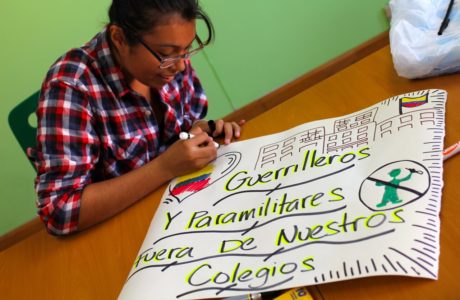 Guerrilleros
Y Paramilitares
fuera De Nuestros
Colegios